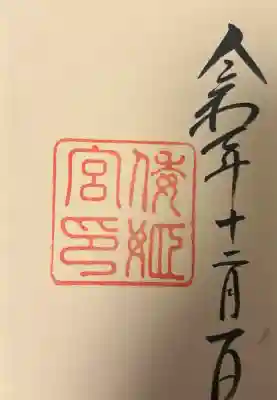 令和年十二月一日
倭姫
宮印